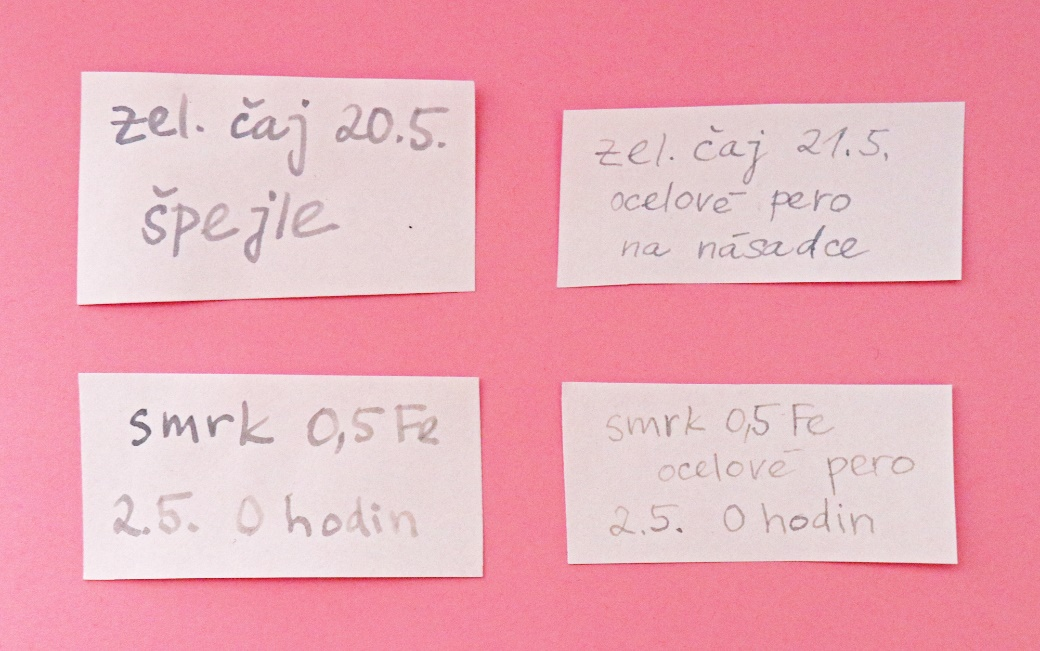 zel. čaj 20.5.
špejle
zel. čaj 21.5.
ocelové pero
na násadce
smrk 0,5 Fe
2.5. 0 hodin
smrk 0,5 Fe
ocelové pero
2.5. 0 hodin